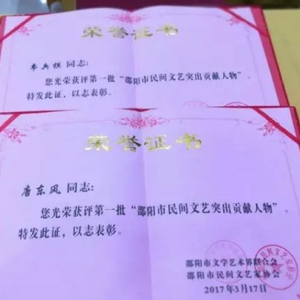 荣誉证书
同志:
您光荣获评第一批“邵阳市民间文艺突出贡献人物”
特发此证,以志表彰。
荣誉证书
唐东风 同志:
您光荣获评第一批“邵阳市民间文艺突出贡献人物”,
特发此证,以志表彰。
邵阳市文学艺术界联合会
邵阳市民间文艺家协会
2017年3月17日